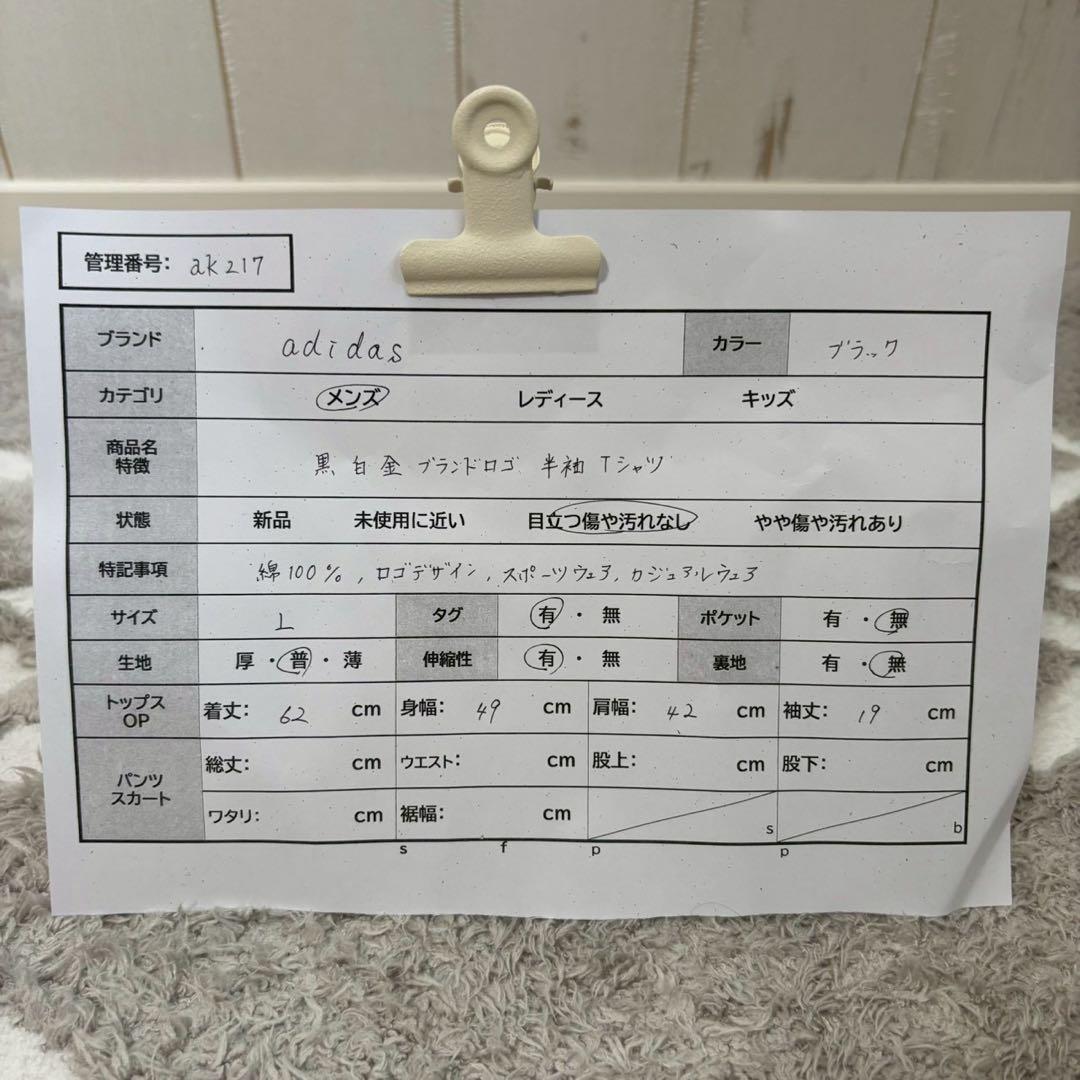 管理番号: ak217
ブランド adidas カラー ブラック
カテゴリ メンズ レディース キッズ
商品名
特徴 黒 白 金 ブランドロゴ 半袖 Tシャツ
状態 新品 未使用に近い 目立つ傷や汚れなし やや傷や汚れあり
特記事項 綿100%, ロゴデザイン, スポーツウェア, カジュアルウェア
サイズ L タグ 有・無 ポケット 有・無
生地 厚・普・薄 伸縮性 有・無 裏地 有・無
トップス
OP 着丈: 62 cm 身幅: 49 cm 肩幅: 42 cm 袖丈: 19 cm
パンツ
スカート 総丈: cm ウエスト: cm 股上: cm 股下: cm
ワタリ: cm 裾幅: cm s b
s f p p